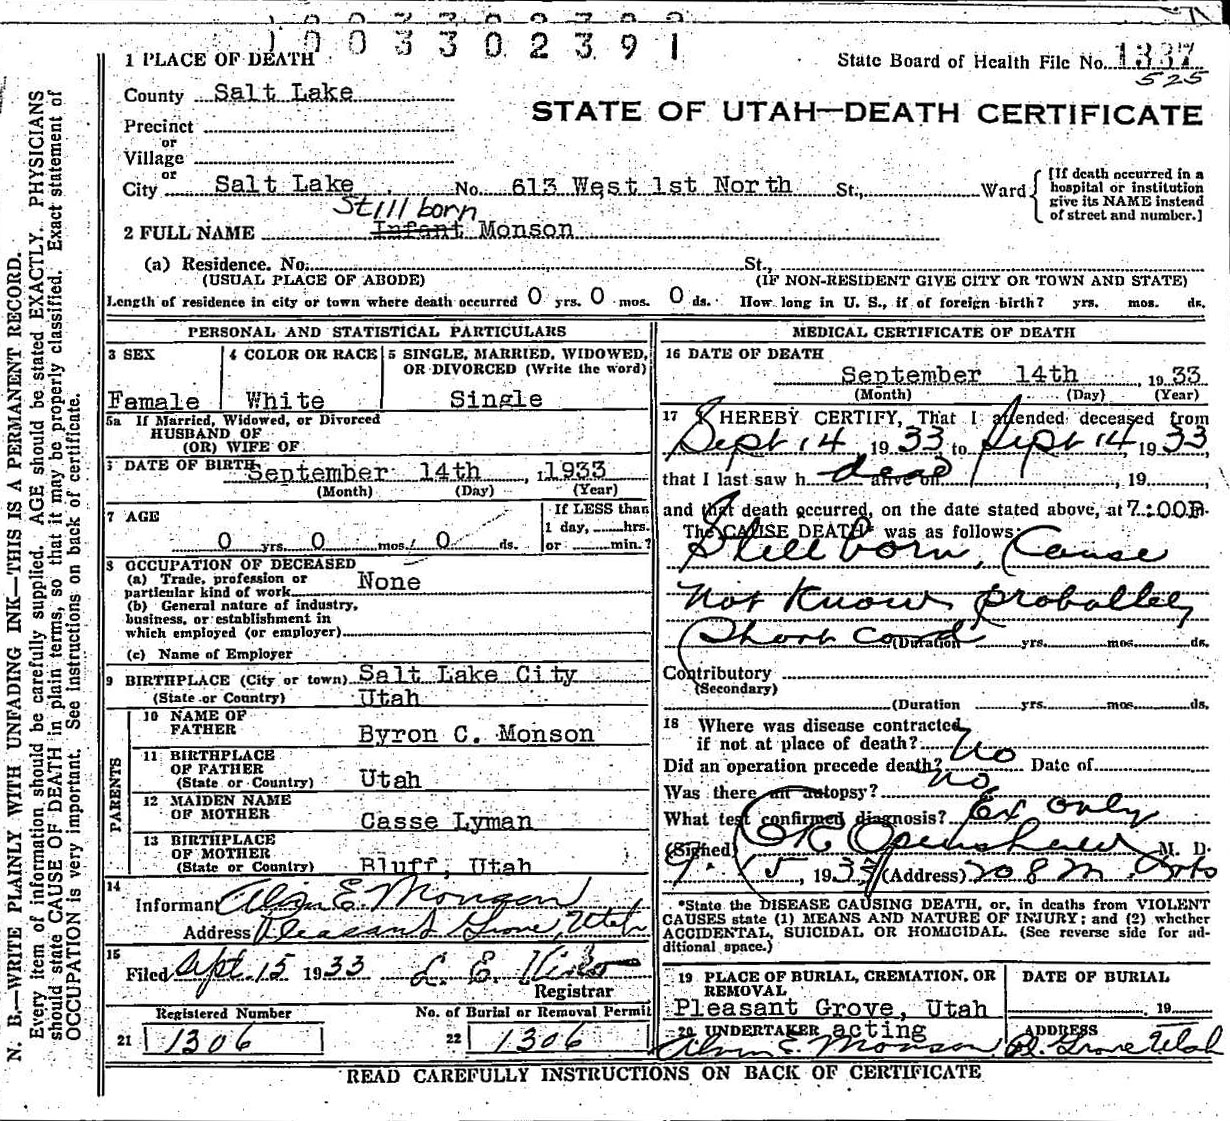 1003302391
1 PLACE OF DEATH
State Board of Health File No. 1337
525
County Salt Lake
STATE OF UTAH—DEATH CERTIFICATE
Precinct
or
Village
or
City Salt Lake No. 613 West 1st North St., Ward
[If death occurred in a hospital or institution give its NAME instead of street and number.]
Stillborn
2 FULL NAME Infant Monson
(a) Residence. No. St.,
(USUAL PLACE OF ABODE) (IF NON-RESIDENT GIVE CITY OR TOWN AND STATE)
Length of residence in city or town where death occurred 0 yrs. 0 mos. 0 ds. How long in U. S., if of foreign birth? yrs. mos. ds.
PERSONAL AND STATISTICAL PARTICULARS
3 SEX
4 COLOR OR RACE
5 SINGLE, MARRIED, WIDOWED,
OR DIVORCED (Write the word)
Famale White Single
5a If Married, Widowed, or Divorced
HUSBAND OF
(OR) WIFE OF
6 DATE OF BIRTH September 14th, 1933
(Month) (Day) (Year)
7 AGE
If LESS than
1 day, hrs.
0 yrs. 0 mos. 0 ds.
or min.?
8 OCCUPATION OF DECEASED
(a) Trade, profession or
particular kind of work None
(b) General nature of industry,
business, or establishment in
which employed (or employer)
(c) Name of Employer
9 BIRTHPLACE (City or town) Salt Lake City
(State or Country) Utah
PARENTS
10 NAME OF
FATHER Byron C. Monson
11 BIRTHPLACE
OF FATHER
(State or Country) Utah
12 MAIDEN NAME
OF MOTHER Casse Lyman
13 BIRTHPLACE
OF MOTHER
(State or Country) Bluff, Utah
14
Informant Alvin E. Monson
Address Pleasant Grove, Utah
15
Filed Sept. 15 1933 L. E.
Registrar
Registered Number
21 1306
No. of Burial or Removal Permit
22 1306
MEDICAL CERTIFICATE OF DEATH
16 DATE OF DEATH
September 14th, 1933
(Month) (Day) (Year)
17 I HEREBY CERTIFY, That I attended deceased from
Sept 14, 1933 to Sept 14, 1933,
that I last saw h dead alive on , 19 ,
and that death occurred, on the date stated above, at 7:00P.
The CAUSE DEATH* was as follows:
Stillborn, Cause
not Know proballey
Short cord (Duration yrs. mos. ds.
Contributory
(Secondary)
(Duration yrs. mos. ds.
18 Where was disease contracted,
if not at place of death?
Did an operation precede death? No Date of
Was there an autopsy? no
What test confirmed diagnosis? Ex only
(Signed) Openshaw M. D.
9-15, 1933 (Address) 208
*State the DISEASE CAUSING DEATH, or, in deaths from VIOLENT
CAUSES state (1) MEANS AND NATURE OF INJURY; and (2) whether
ACCIDENTAL, SUICIDAL OR HOMICIDAL. (See reverse side for ad-
ditional space.)
19 PLACE OF BURIAL, CREMATION, OR
REMOVAL
Pleasant Grove, Utah
DATE OF BURIAL
19
20 UNDERTAKER acting
Alvin E. Monson
ADDRESS
Pl. Grove Utah
READ CAREFULLY INSTRUCTIONS ON BACK OF CERTIFICATE
N. B.—WRITE PLAINLY WITH UNFADING INK—THIS IS A PERMANENT RECORD.
Every item of information should be carefully supplied. AGE should be stated EXACTLY. PHYSICIANS
should state CAUSE OF DEATH in plain terms, so that it may be properly classified. Exact statement of
OCCUPATION is very important. See instructions on back of certificate.